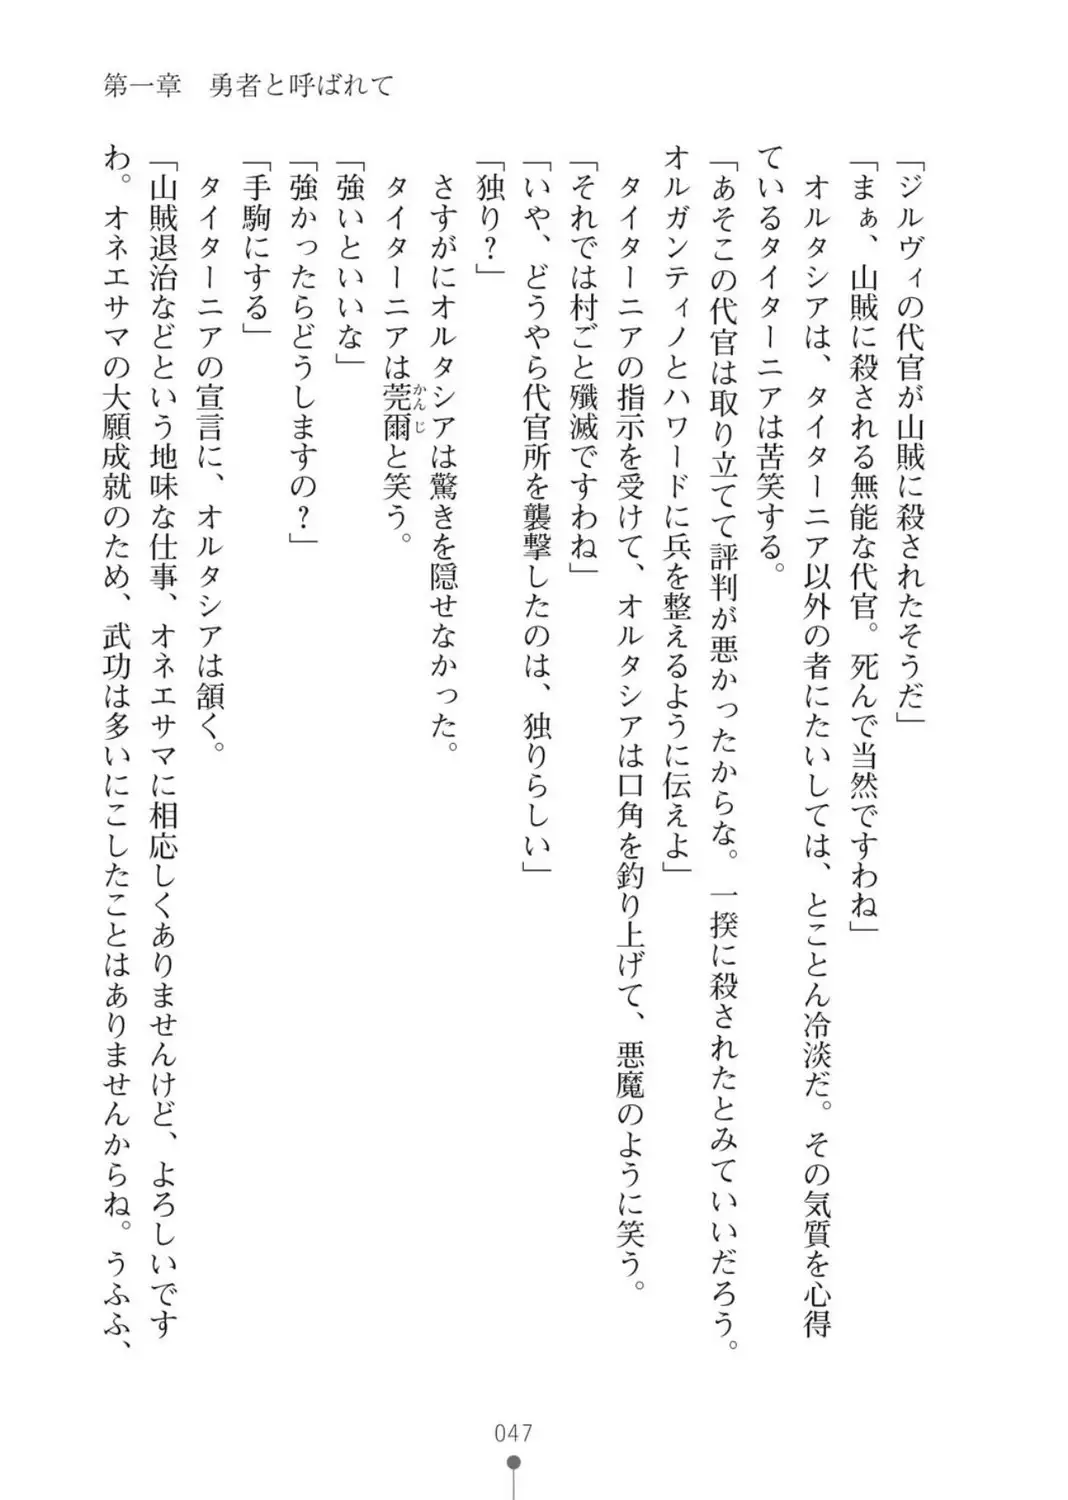 第一章　勇者と呼ばれて
「ジルヴィの代官が山賊に殺されたそうだ」
「まぁ、山賊に殺される無能な代官。死んで当然ですわね」
　オルタシアは、タイターニア以外の者にたいしては、とことん冷淡だ。その気質を心得
ているタイターニアは苦笑する。
「あそこの代官は取り立てて評判が悪かったからな。一揆に殺されたとみていいだろう。
オルガンティノとハワードに兵を整えるように伝えよ」
　タイターニアの指示を受けて、オルタシアは口角を釣り上げて、悪魔のように笑う。
「それでは村ごと殲滅ですわね」
「いや、どうやら代官所を襲撃したのは、独りらしい」
「独り？」
　さすがにオルタシアは驚きを隠せなかった。
　タイターニアは莞爾かんじと笑う。
「強いといいな」
「強かったらどうしますの？」
「手駒にする」
　タイターニアの宣言に、オルタシアは頷く。
「山賊退治などという地味な仕事、オネエサマに相応しくありませんけど、よろしいです
わ。オネエサマの大願成就のため、武功は多いにこしたことはありませんからね。うふふ、
047